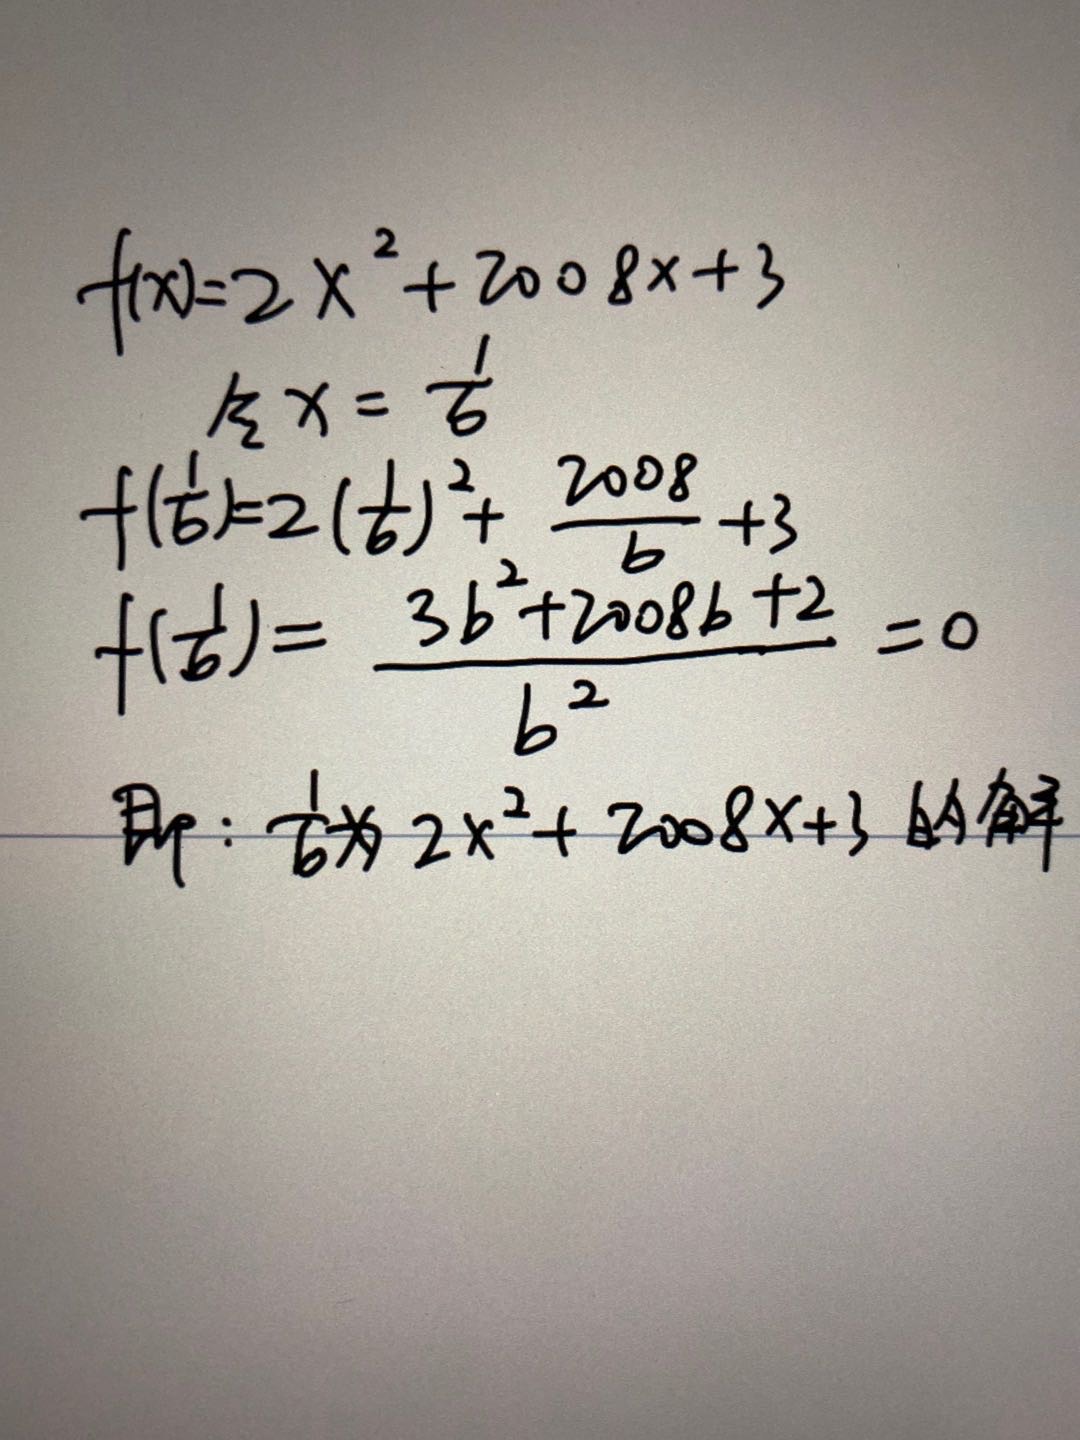 f(x)=2x²+2008x+3
令 x = 1/b
f(1/b)=2(1/b)²+ 2008/b +3
f(1/b)= (3b²+2008b+2)/b² =0
即: 1/b为 2x²+2008x+3 的解